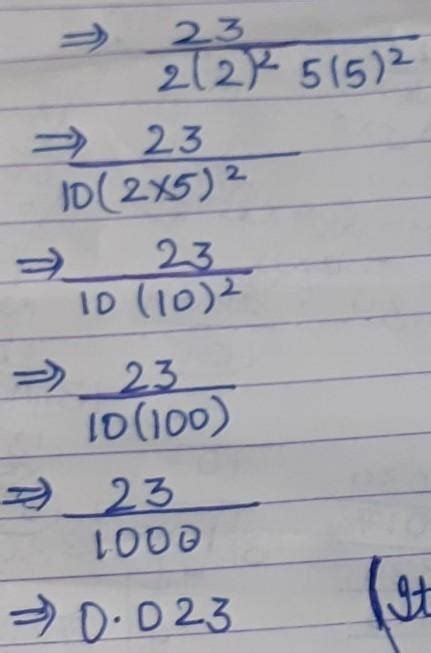 ⇒ 23
2(2)² 5(5)²
⇒ 23
10(2×5)²
⇒ 23
10 (10)²
⇒ 23
10(100)
⇒ 23
1000
⇒ 0.023 (It